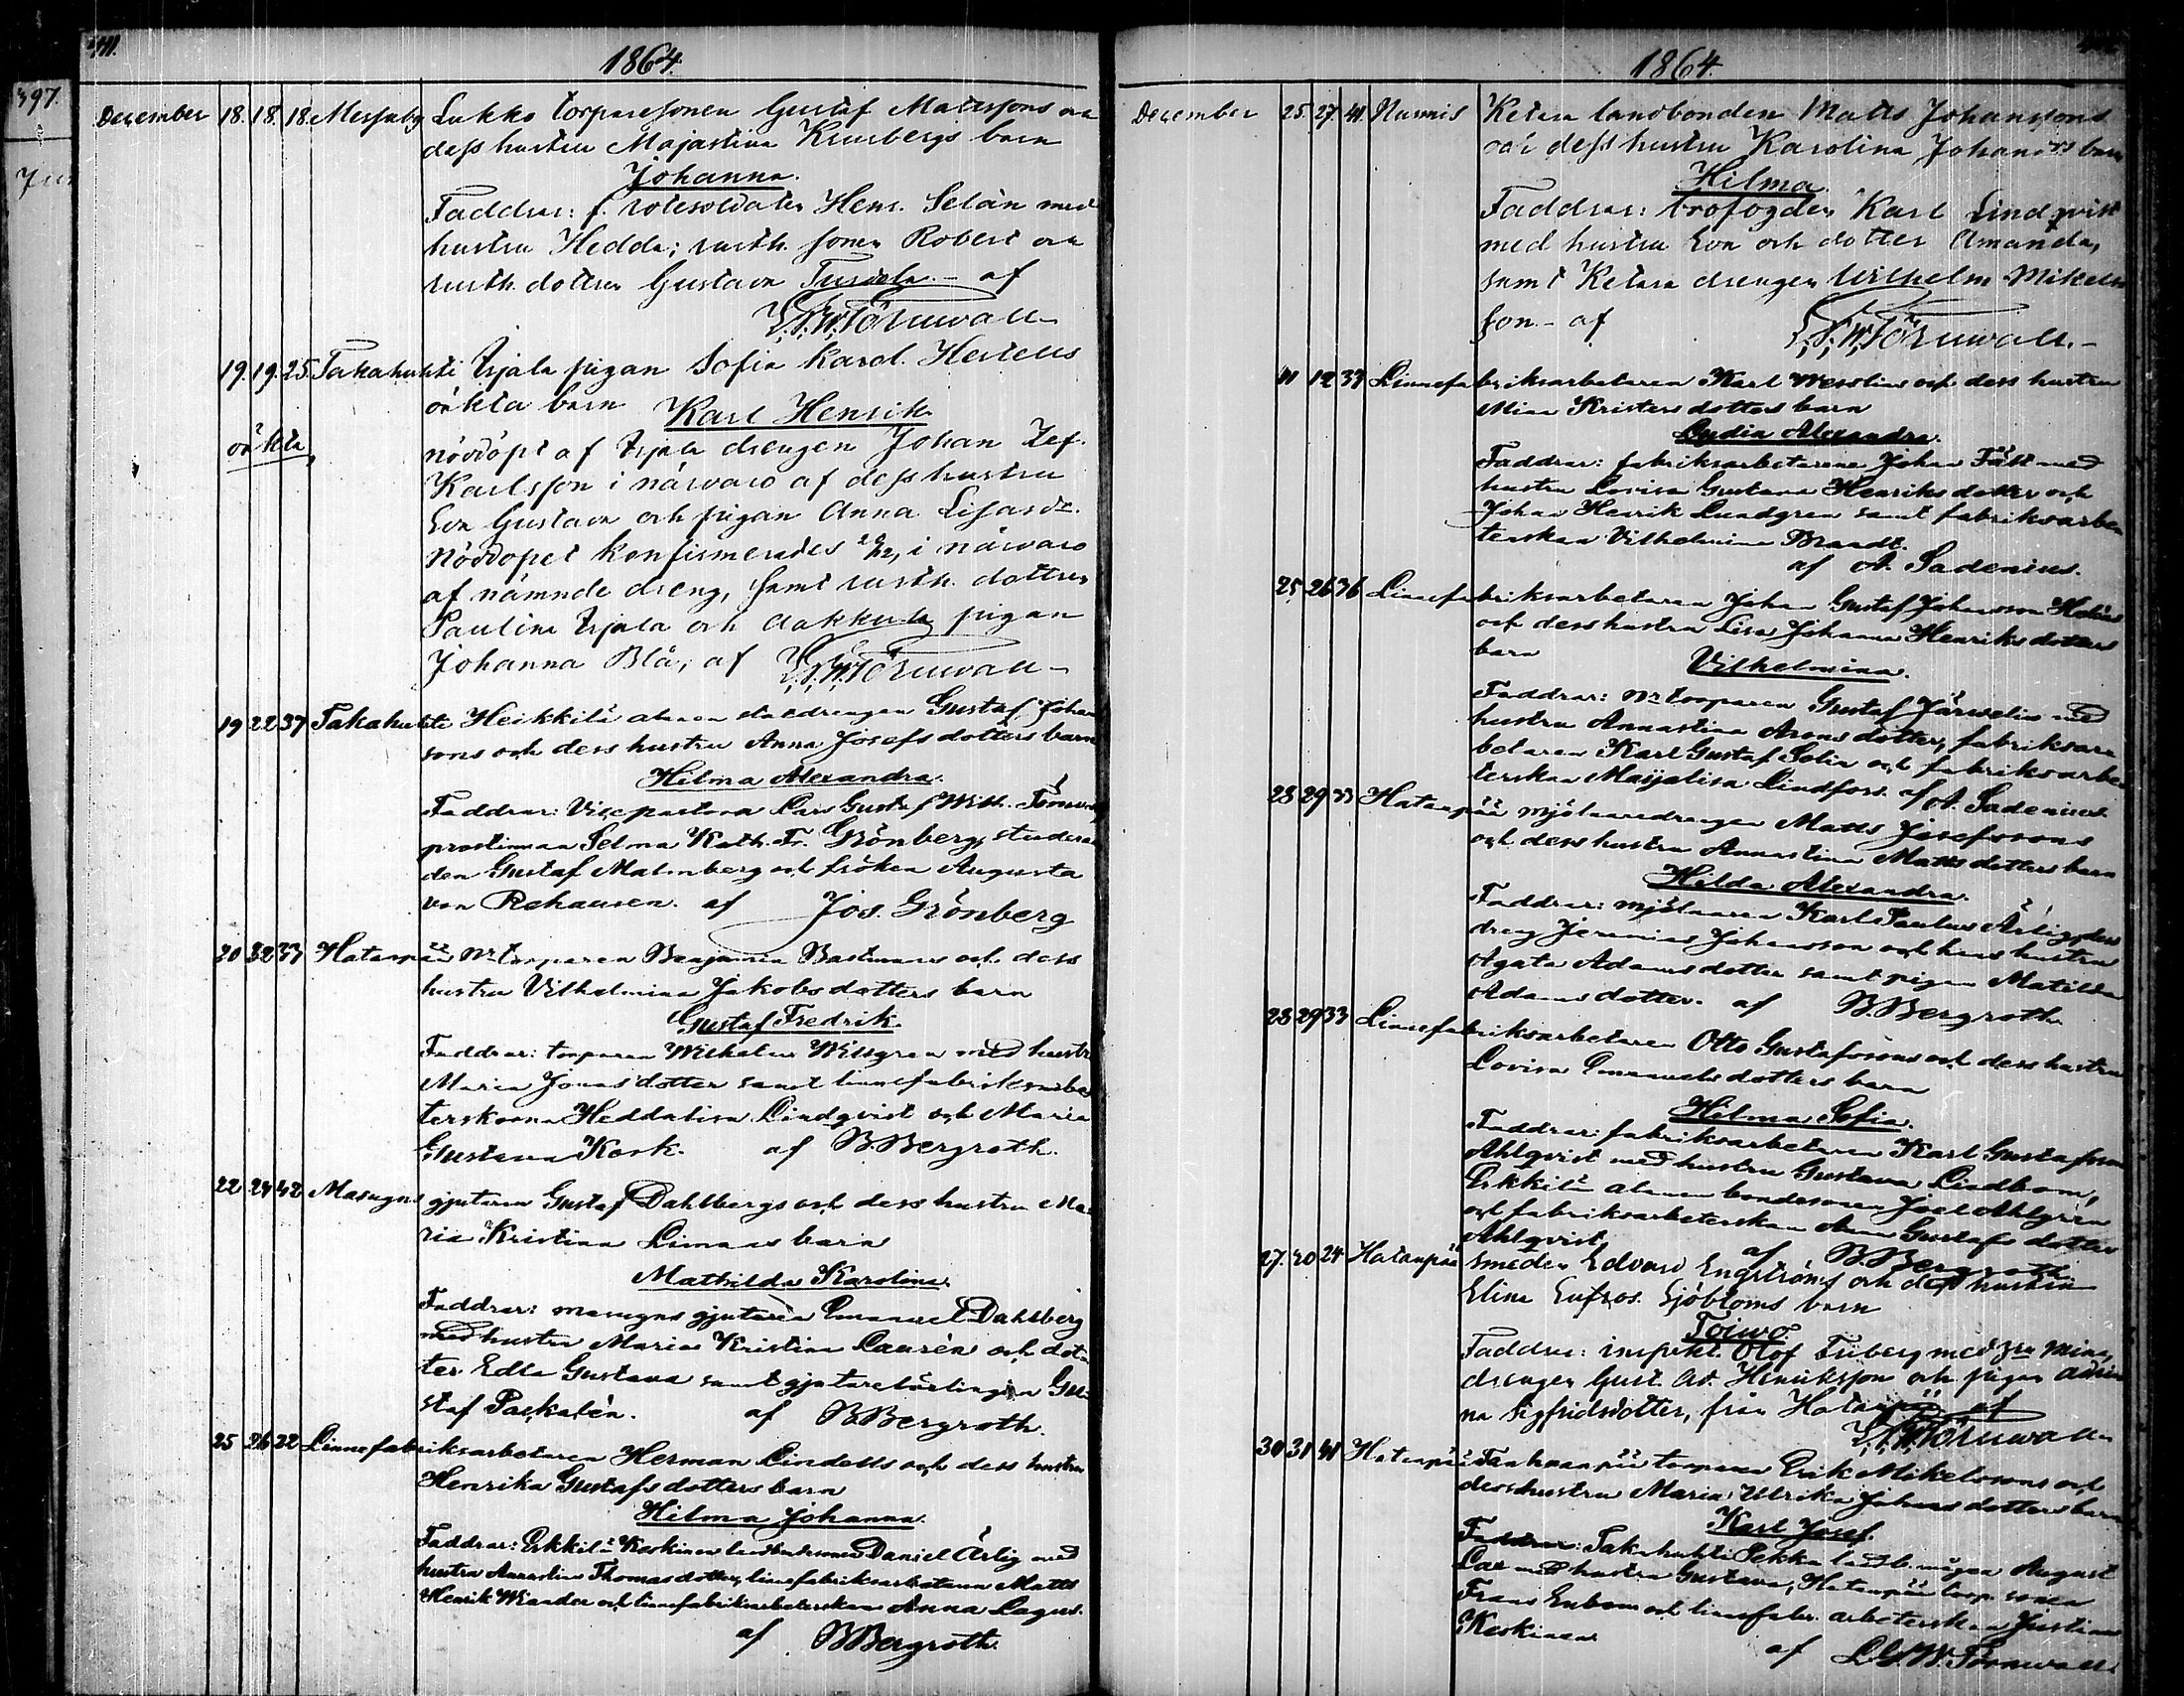 1864.
397.
December 18. 18. 18. Messuby Lukko torparesonen Gustaf Matssons och
dess hustru Majastina Krusbergs barn
Johanna.
Faddrar: f. rotesoldaten Henr. Selän med
hustru Hedda; rusth. sonen Robert och
rusth. dottren Gustava Turdela. – af
L.G.W. Törnwall
19. 19. 25. Takahuhti Irjala pigan Sofia Karol. Hertells
oäkta barn Karl Henrik
oäkta
nöddöpt af Irjala drengen Johan Zef.
Karlsson i närvaro af dess hustru
Eva Gustava och pigan Anna Lisasdr.
Nöddopet konfirmerades i närvaro
af nämnde dreng, samt rusth. dottren
Paulina Irjala och Lakkula pigan
Johanna Blå, af L.G.W. Törnwall
19 22 37 Takahuhti Heikkilä statdrengen Gustaf Johans
sons och dess hustru Anna Josefsdotters barn
Hilma Alexandra.
Faddrar: Vicepastorn Lars Gustaf Wilh. Törnwall
prostinnan Selma Kath. Fr. Grönberg, studeran
den Gustaf Malmberg och fröken Augusta
von Rehausen. af Jos. Grönberg
20 22 33 Hatanpää torparen Benjamin Bastmans och dess
hustru Vilhelmina Jakobsdotters barn
Gustaf Fredrik.
Faddrar: torparen Wilhelm Willgren med hustru
Maria Jonasdotter samt linnefabriksarbe
terskorna Heddalisa Lindqvist och Maria
Gustava Kosk. af B. Bergroth.
22 24 42 Masugns gjutaren Gustaf Dahlbergs och dess hustru Ma
ria Kristina Limans barn
Mathilda Karolina.
Faddrar: masugns gjutaren Emanuel Dahlberg
med hustru Maria Kristina Laurén och dot
ter Edla Gustava samt gjutarelärlingen Gu
staf Paskalén. af B. Bergroth.
25 26 22 Linnefabriksarbetaren Herman Lindells och dess hustru
Henrika Gustafsdotters barn
Hilma Johanna.
Faddrar: Erkkilä Koskinen landbondesonen Daniel Ärlig med
hustru Annastina Thomasdotter, linnefabriksarbetaren Matts
Henrik Wiander och linnefabriksarbeterskan Anna Lagus.
af B. Bergroth.
1864.
December 25. 27. 41. Nurmis Ketara landbonden Matts Johanssons
och dess hustru Karolina Johansdrs barn
Hilma.
Faddrar: brofogden Karl Lindqvist
med hustru Eva och dotter Amanda,
samt Ketara drengen Wilhelm Mikels
son – af L.G.W. Törnwall. –
11 12 33 Linnefabriksarbetaren Karl Wesslins och dess hustru
Mina Kristersdotters barn
Lydia Alexandra.
Faddrar: fabriksarbetarene Johan Fält med
hustru Lovisa Gustava Henriksdotter och
Johan Henrik Lundgren samt fabriksarbe
terskan Vilhelmina Brandt.
af A. Sadenius.
25 26 36 Linnefabriksarbetaren Johan Gustaf Johansson
och dess hustru Lisa Johanna Henriksdotters
barn Vilhelmina.
Faddrar: torparen Gustaf Järvelin med
hustru Annastina Aronsdotter, fabriksar
betaren Karl Gustaf Solin och fabriksarbe
terskan Majalisa Lindfors. af A. Sadenius.
28 29 33 Hatanpää mjölnaredrengen Matts Josefssons
och dess hustru Annastina Mattsdotters barn
Hilda Alexandra.
Faddrar: mjölnaren Karl Paulus Ärlig, dess
dreng Jeremias Johansson och hans hustru
Agata Adamsdotter samt pigan Matilda
Adamsdotter. af B. Bergroth
28 29 33 Linnefabriksarbetaren Otto Gustafssons och dess hustru
Lovisa Emanuelsdotters barn
Hilma Sofia.
Faddrar: fabriksarbetaren Karl Gustafsson
Ahlqvist med hustru Gustava Lindbom,
Erkkilä bondesonen Joel Ahlgrén
och fabriksarbeterskan Anna Gustafsdotter
Ahlqvist. af B. Bergroth.
27. 30 24 Hatanpää smeden Edvard Engströms och dess hustru
Elina Eufros. Sjöbloms barn
Toiwo.
Faddrar: inspekt. Olof Friberg med fru Mina,
drengen Gust. Ad. Henriksson och pigan Adolfi
na Sigfridsdotter, från Hatanpää af
L.G.W. Törnwall
30 31 41 Hatanpää torparen Erik Mikelssons och
dess hustru Maria Ulrika Johansdotters barn
Karl Josef.
Faddrar: Takahuhti Pekka landb. mågen August
med hustru Gustava, Hatanpää torp. sonen
Frans Enbom och linnefabr. arbeterskan Justina
Koskinen. af L.G.W. Törnwall.